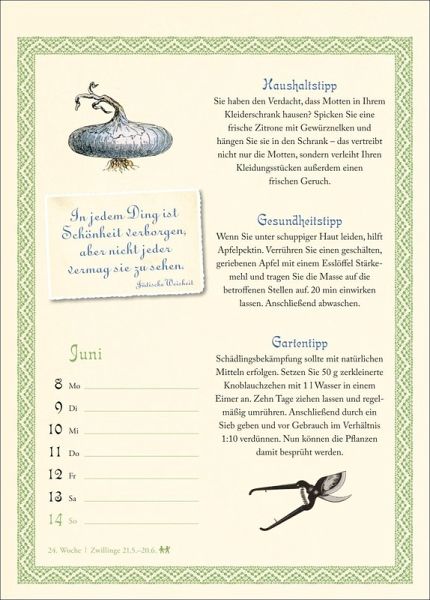 Haushaltstipp
Sie haben den Verdacht, dass Motten in Ihrem
Kleiderschrank hausen? Spicken Sie eine
frische Zitrone mit Gewürznelken und
hängen Sie sie in den Schrank – das vertreibt
nicht nur die Motten, sondern verleiht Ihren
Kleidungsstücken außerdem einen
frischen Geruch.
In jedem Ding ist
Schönheit verborgen,
aber nicht jeder
vermag sie zu sehen.
Jüdische Weisheit
Gesundheitstipp
Wenn Sie unter schuppiger Haut leiden, hilft
Apfelpektin. Verrühren Sie einen geschälten,
geriebenen Apfel mit einem Esslöffel Stärke-
mehl und tragen Sie die Masse auf die
betroffenen Stellen auf. 20 min einwirken
lassen. Anschließend abwaschen.
Gartentipp
Schädlingsbekämpfung sollte mit natürlichen
Mitteln erfolgen. Setzen Sie 50 g zerkleinerte
Knoblauchzehen mit 1 l Wasser in einem
Eimer an. Zehn Tage ziehen lassen und regel-
mäßig umrühren. Anschließend durch ein
Sieb geben und vor Gebrauch im Verhältnis
1:10 verdünnen. Nun können die Pflanzen
damit besprüht werden.
Juni
8 Mo
9 Di
10 Mi
11 Do
12 Fr
13 Sa
14 So
24. Woche | Zwillinge 21.5.–20.6.